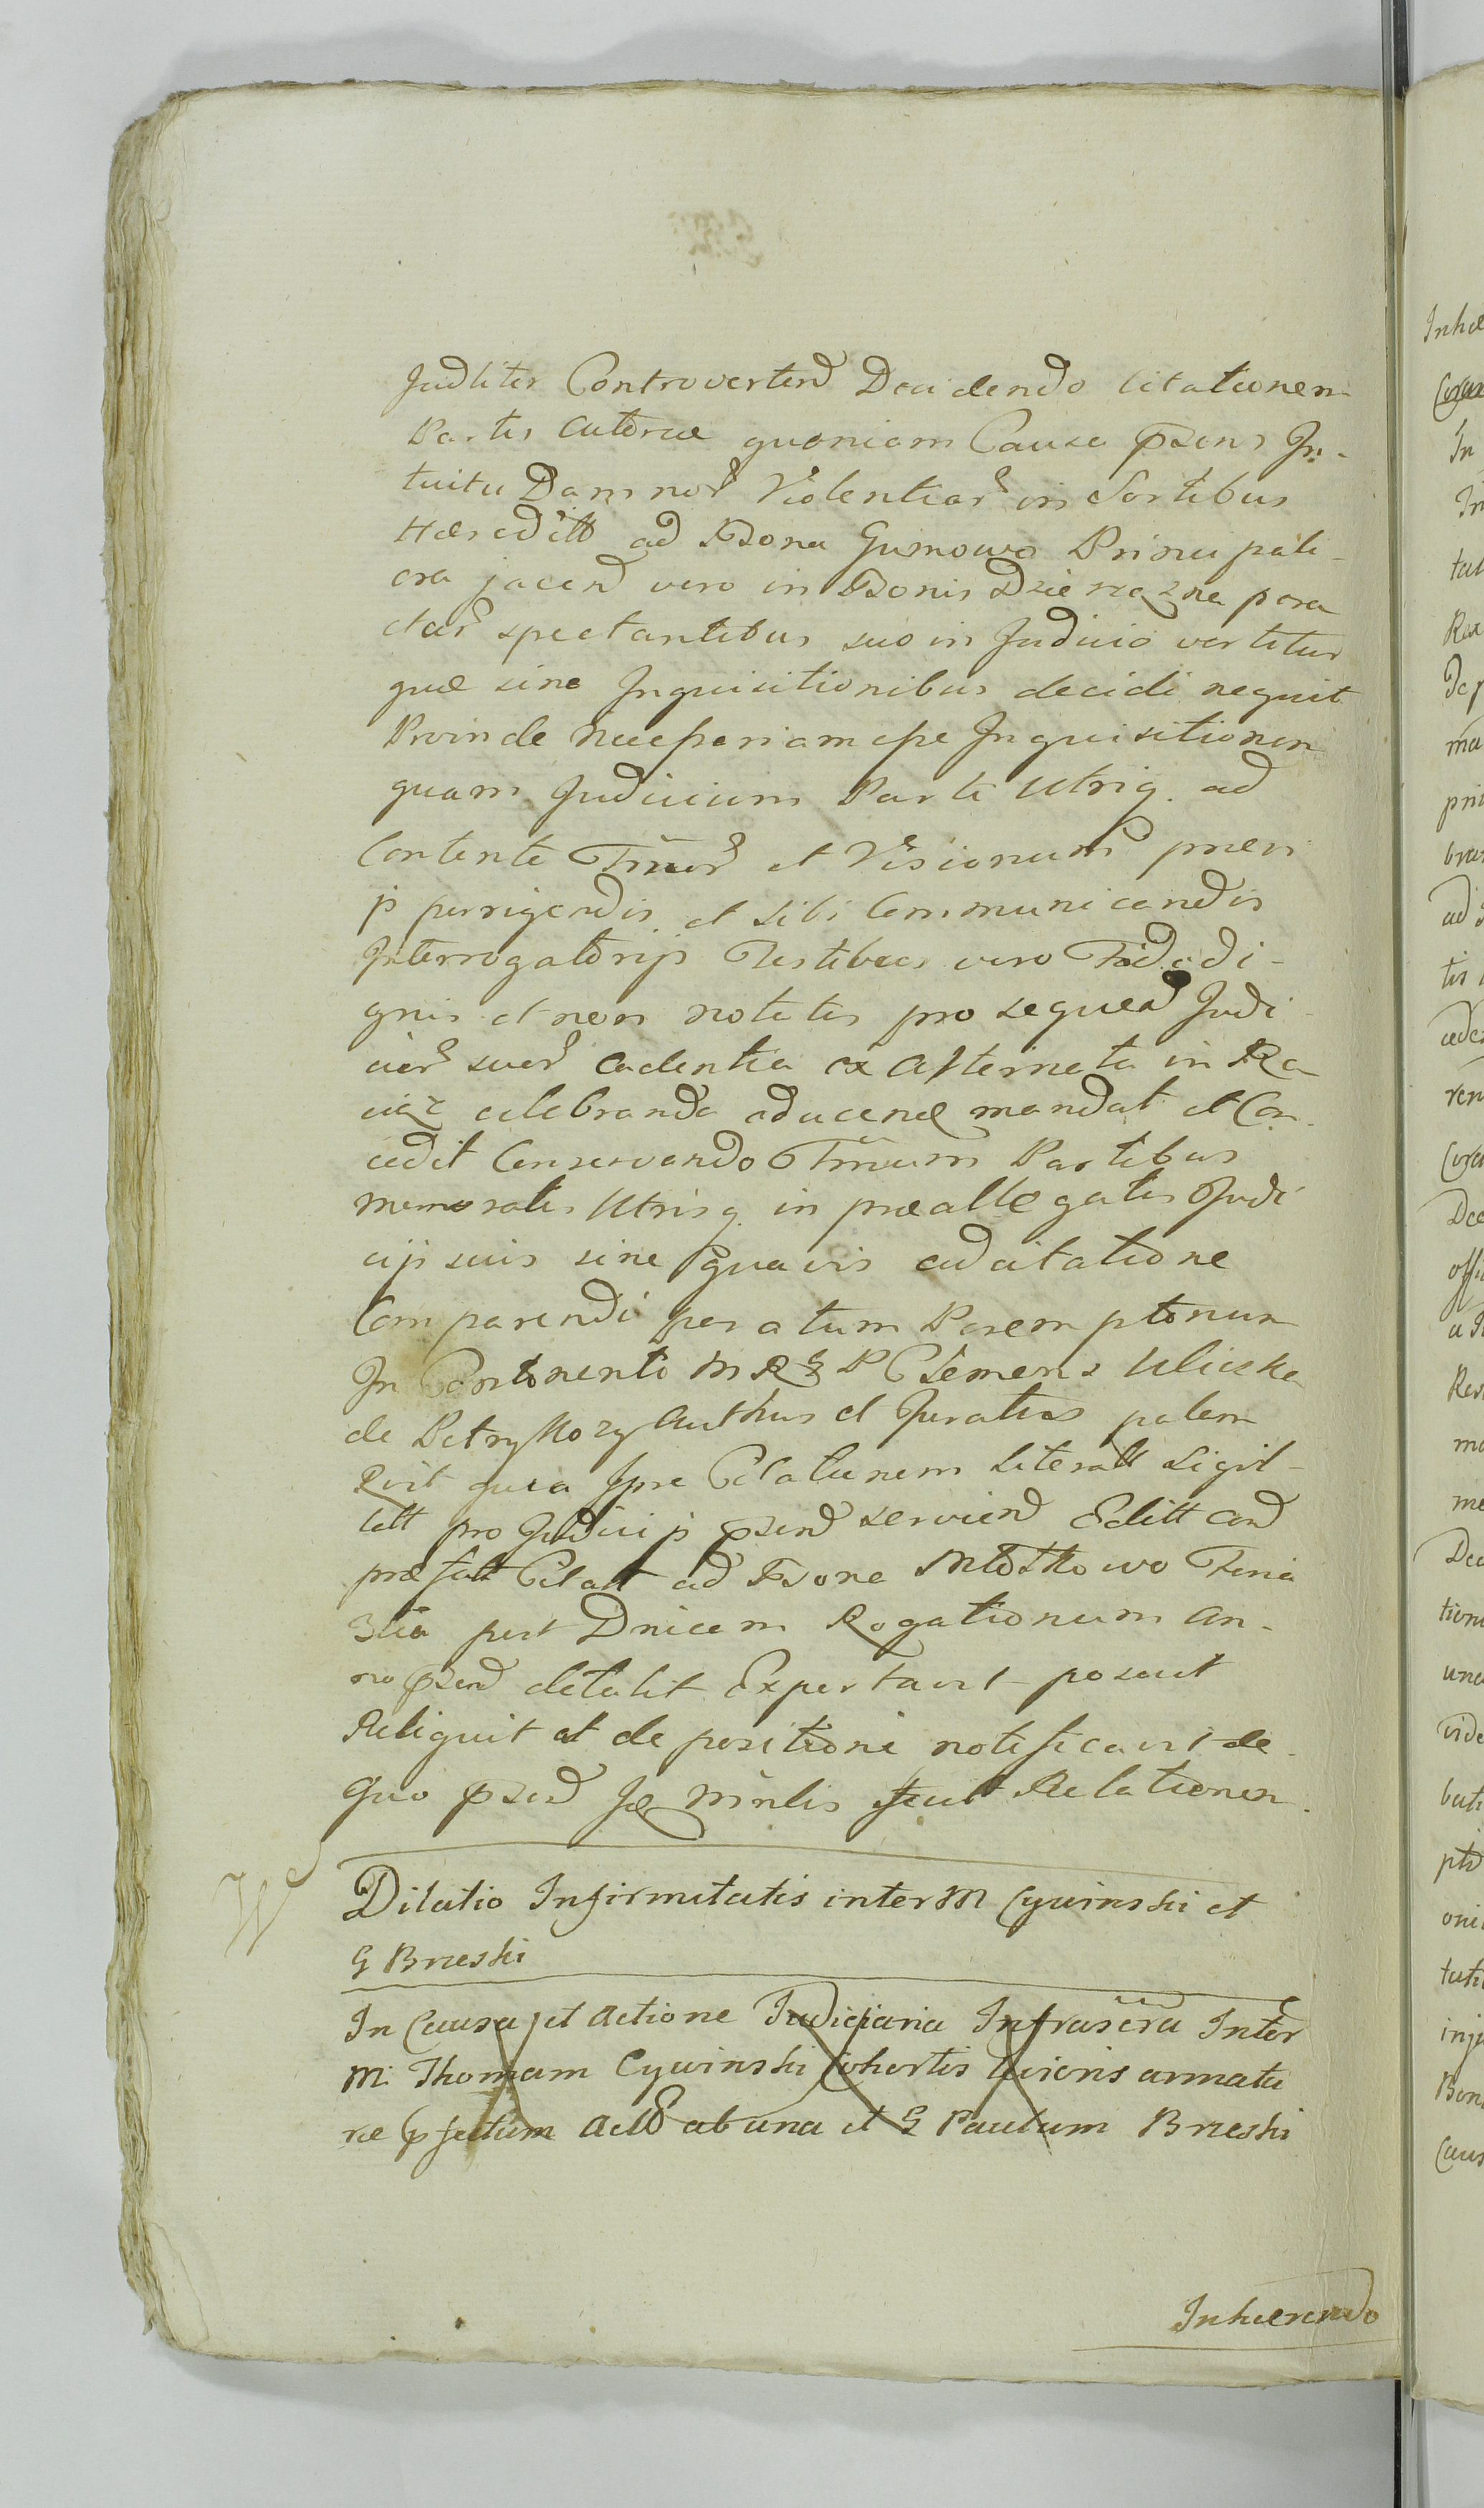 Judliter Controvertend Decidendo Citationem
Partis Autoreæ quoniam Causa p̄sens In-
tuitu Damnor Violentiar in Sortibus
Hæreditt ad Bona Gumowo Principali-
ora jacend vero in Bonis Dzierzążna para
dar spectantibus suo in Judicio vertitur
quæ sine Inquisitionibus decidi nequit
Proinde Necessariam esse Inquisitionem
quam Judicium Parti Utriq. ad
Contenta Tm̄nor et Visionum
porrigendis et sibi Communicandis
Interrogatorijs Testibus vero Fidedi-
gnis et non notatis pro sequen Judi
cior suor Cadentia ex Alternata in Ra
ciąż celebranda aducend mandat et Con-
cedit Conservando Tm̄num Partibus
memoratis Utrisq. in præallegatis Judi
cijs suis sine quavis adcitatione
Comparendi peratum Peremptorium
In Continenti M R P Clemens Ulicska
de Petrykozy Authus et Juratus palam
Rvit quia Ipse Citationem Literatt Sigil-
latt pro Judicijs p̄send serviend Editt and
præfatt Citatt ad Bona Mlotkowo Feria
3tia post Dnicam Rogationum An-
no p̄send detulit Exportavit posuit
Reliquit et de positione notificavit de
quo p̄send Je Mnlis fecit Relationem.
Dilatio Infirmitatis inter M Cywinski et
G Brzeski
In Causa et Actione Judiciaria Infrascra Inter
M. Thomam Cywinski Cohortis Levioris armatu
ræ p̄fectum Act ab una et G Paulum Brzeski
Inhærendo